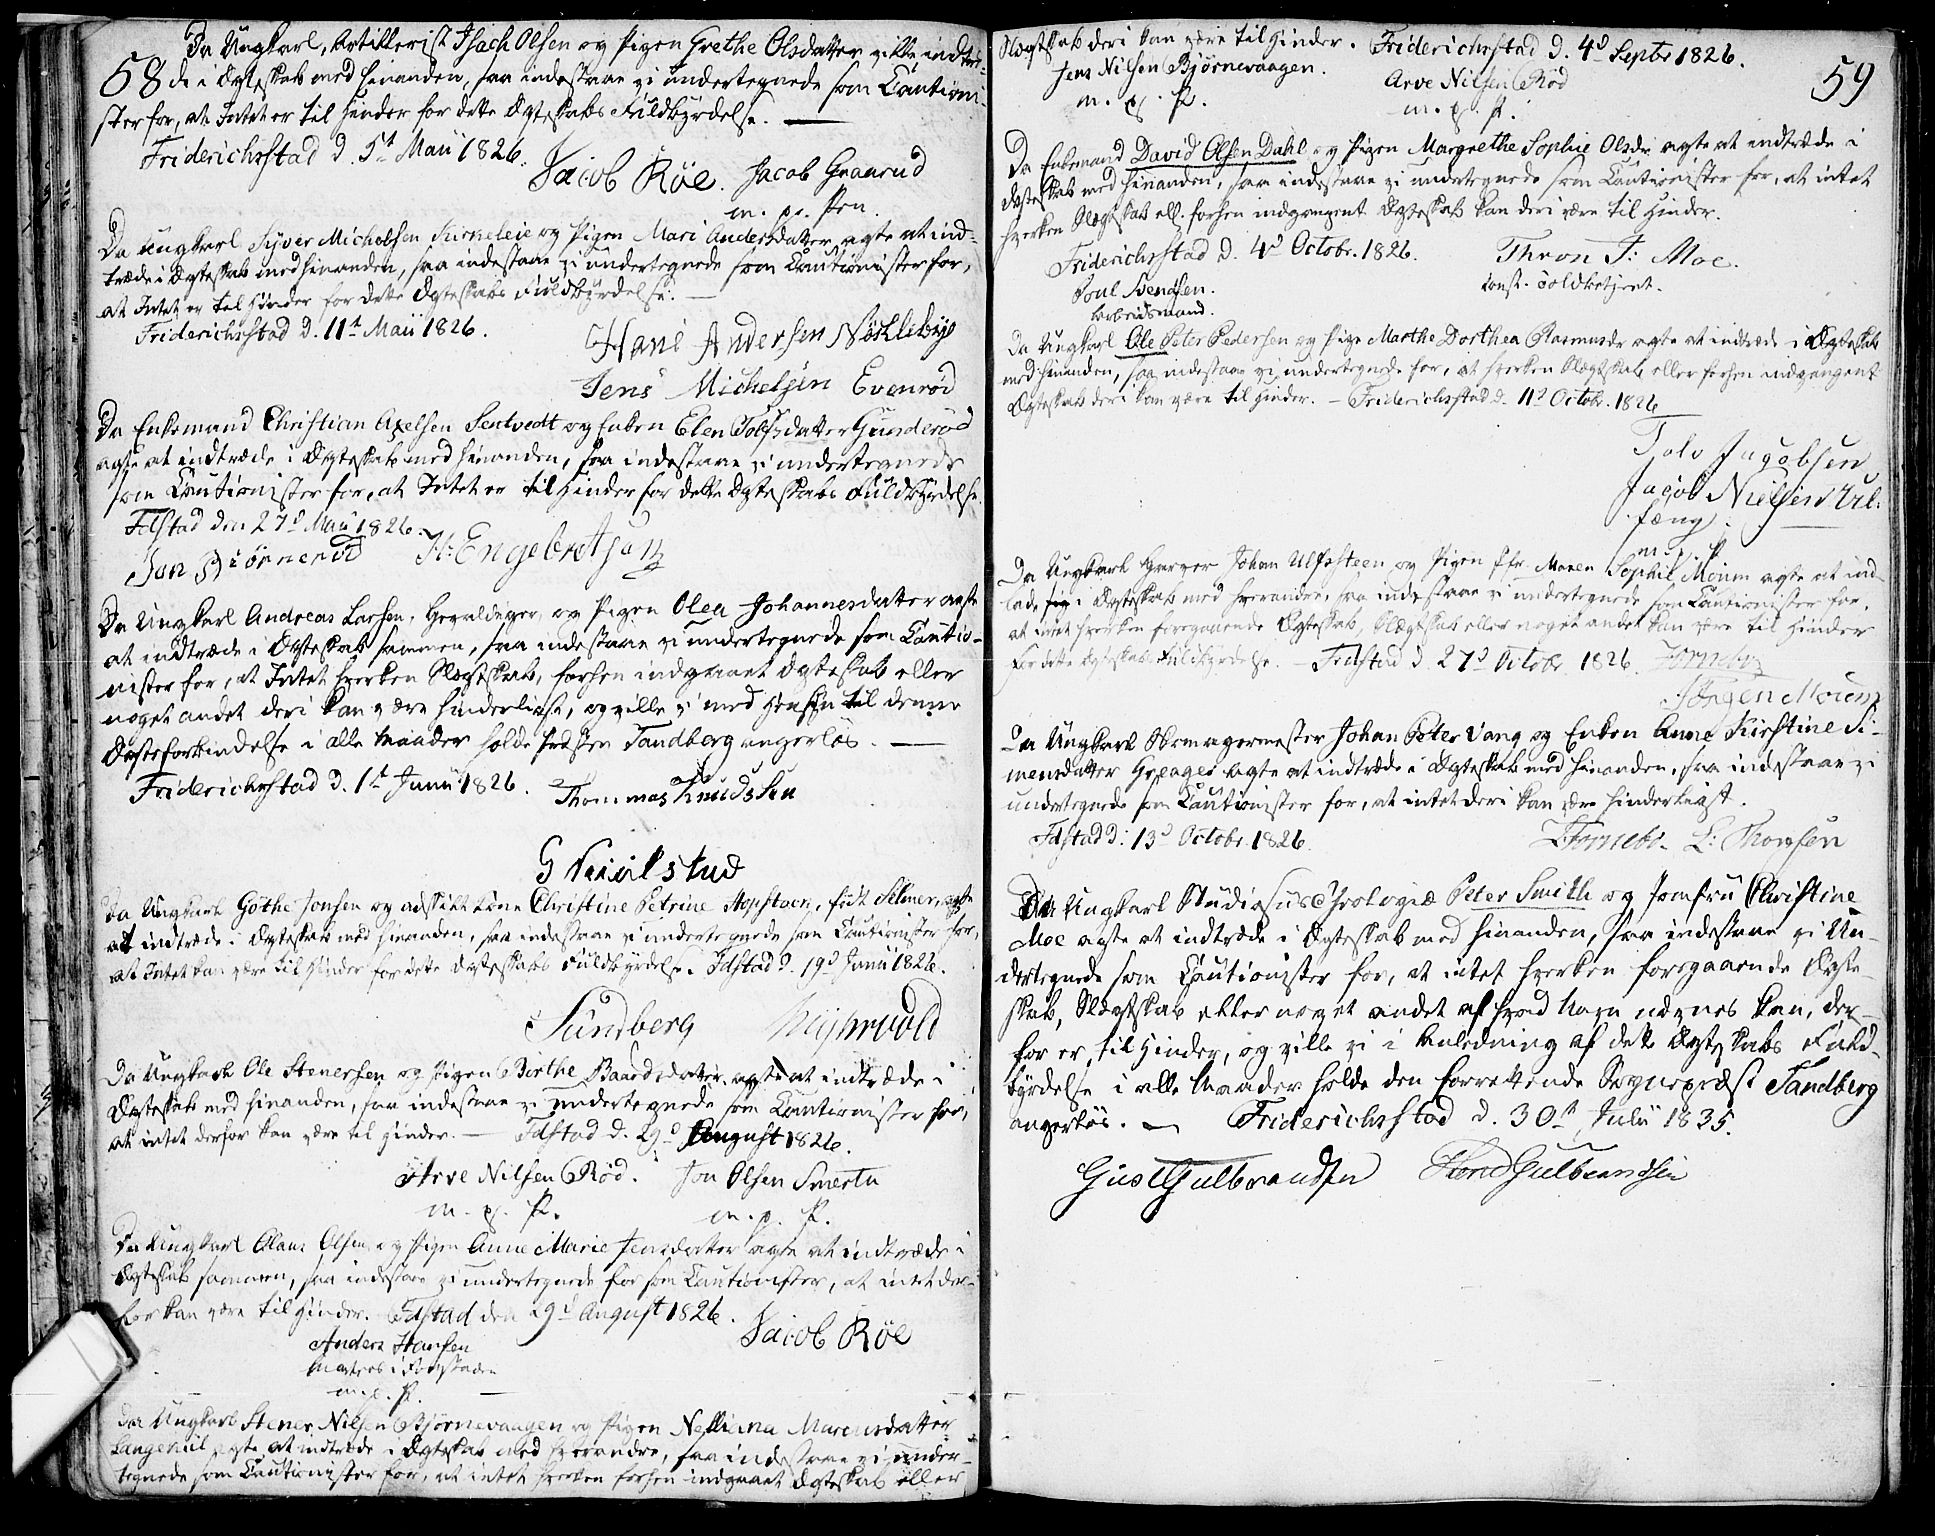 58
Da Ungkarl, Artillerist Isach Olsen og Pigen Grethe Olsdatter ville indtræ-
de i Ægteskab med hinanden, saa indestaae vi undertegnede som Cautioni-
ster for, at Intet er til Hinder for dette Ægteskabs Fuldbyrdelse. —
Friderichstad d. 5t Maii 1826.
Jacob Röe. Jacob Graarud
m. p. Pen.
Da Ungkarl Syver Michelsen Kirneleie og Pigen Mari Andersdatter agte at ind-
træde i Ægteskab med hinanden, saa indestaae vi undertegnede som Cautionister for,
at Intet er til Hinder for dette Ægteskabs Fuldbyrdelse. —
Friderichstad d. 11t Maii 1826.
Hans Andersen Nöklebye
Jens Michelsen Evenrød
Da Enkemand Christian Axelsen Sentvedt og Enken Elen Tolfsdatter Gunderød
agte at indtræde i Ægteskab med hinanden, saa indestaae vi undertegnede
som Cautionister for, at Intet er til Hinder for dette Ægteskabs Fuldbyrdelse.
Fdstad den 27d Maii 1826.
Jan Biörnerød H: Engebretsen
Da Ungkarl Andreas Larsen, Gevaldiger, og Pigen Olea Johannesdatter agte
at indtræde i Ægteskab sammen, saa indestaae vi undertegnede som Cautio-
nister for, at Intet hverken Slægtskab, forhen indgaaet Ægteskab eller
noget andet deri kan være hinderligt, og ville vi med Hensyn til denne
Ægteforbindelse i alle Maader holde Præsten Sandberg angerløs. —
Friderichstad d. 1t Junii 1826. Thommas Knudssen
G Navelstud
Da Ungkarl Göthe Jonsen og adskilt Kone Christine Petrine Stopsteen, född Selmer, agte
at indtræde i Ægteskab med hinanden, saa indestaae vi undertegnede som Cautionister for,
at Intet kan være til Hinder for dette Ægteskabs Fuldbyrdelse. Fdstad d. 19d Junii 1826.
Sundberg
Da Ungkarl Ole Stenersen og Pigen Birthe Baardsdatter agte at indtræde i
Ægteskab med hinanden, saa indestaae vi undertegnede som Cautionister for,
at intet derfor kan være til Hinder. — Fdstad d. 29d August 1826.
Arve Nilsen Rød. Jon Olsen Smertu
m. p. P. m. p. P.
Da Ungkarl Olaus Olsen og Pigen Anne Marie Jensdatter agte at indtræde i
Ægteskab sammen, saa indestaae vi undertegnede for som Cautionister, at intet der-
for kan være til Hinder. Fdstad den 29d August 1826.
Anders Hansen Jacob Röe
Matros i Forstaden
m. p. P.
Da Ungkarl Stener Nilsen Bjørnevaagen og Pigen Nelliana Marcusdatter
Langeniil agte at indtræde i Ægteskab med hverandre, saa indestaae vi under-
tegnede som Cautionister for, at intet hverken forhen indgaaet Ægteskab eller
59
Slægtskab deri kan være til Hinder. Friderichstad d. 4d Septr 1826.
Jens Nilsen Bjørnevaagen. Arve Nilsen Rød
m. p. P. m. p. P.
Da Enkemand David Olsen Dahl og Pigen Margrethe Sophie Olsdr agte at indtræde i
Ægteskab med hinanden, saa indestaae vi undertegnede som Cautionister for, at intet
hverken Slægtskab ell. forhen indgangent Ægteskab kan deri være til Hinder.
Friderichstad d. 4d Octobr. 1826. Thron J: Moe.
Poul Svendsen. const. Toldbetjent.
Arbeidsmand.
Da Ungkarl Ole Peter Pedersen og Pige Marthe Dorthea Rasmusdr agte at indtræde i Ægteskab
med hinanden, saa indestaae vi undertegnede for, at hverken Slægtskab eller forhen indgangent
Ægteskab deri kan være til Hinder. — Friderichstad d. 11d Octobr. 1826
Tolv Jagobsen
Jacob Nielsen
m. p. P
Da Ungkarl Garver Johan Ulfsteen og Pigen Jfr. Maren Sophie Moum agte at ind-
lade sig i Ægteskab med hverandre, saa indestaae vi undertegnede som Cautionister for,
at intet hverken foregaaende Ægteskab, Slægtskab eller noget andet kan være til Hinder
for dette Ægteskabs Fuldbyrdelse. — Fridstad d. 27d Octobr 1826. Fornebo
Jörgen Moum
Da Ungkarl Skomagermester Johan Peter Vang og Enken Anne Kirstine Si-
mensdatter agte at indtræde i Ægteskab med hinanden, saa indestaae vi
undertegnede som Cautionister for, at intet deri kan være hinderligt.
Fdstad d: 13d Octobr. 1826. Fornebo. L: Thomsen
Da Ungkarl Studiosus Theologiæ Peter Smith og Jomfru Christine
Moe agte at indtræde i Ægteskab med hinanden, saa indestaae vi Un-
dertegnede som Cautionister for, at intet hverken foregaaende Ægte-
skab, Slægtskab eller noget andet af hvad Navn nævnes kan, der-
for er til Hinder, og ville vi i Anledning af dette Ægteskabs Fuld-
byrdelse i alle Maader holde den forrettende Sognepræst Sandberg
angerløs. — Friderichstad d. 30t Julii 1835.
Gust Gulbrandsen Gulbrandsen